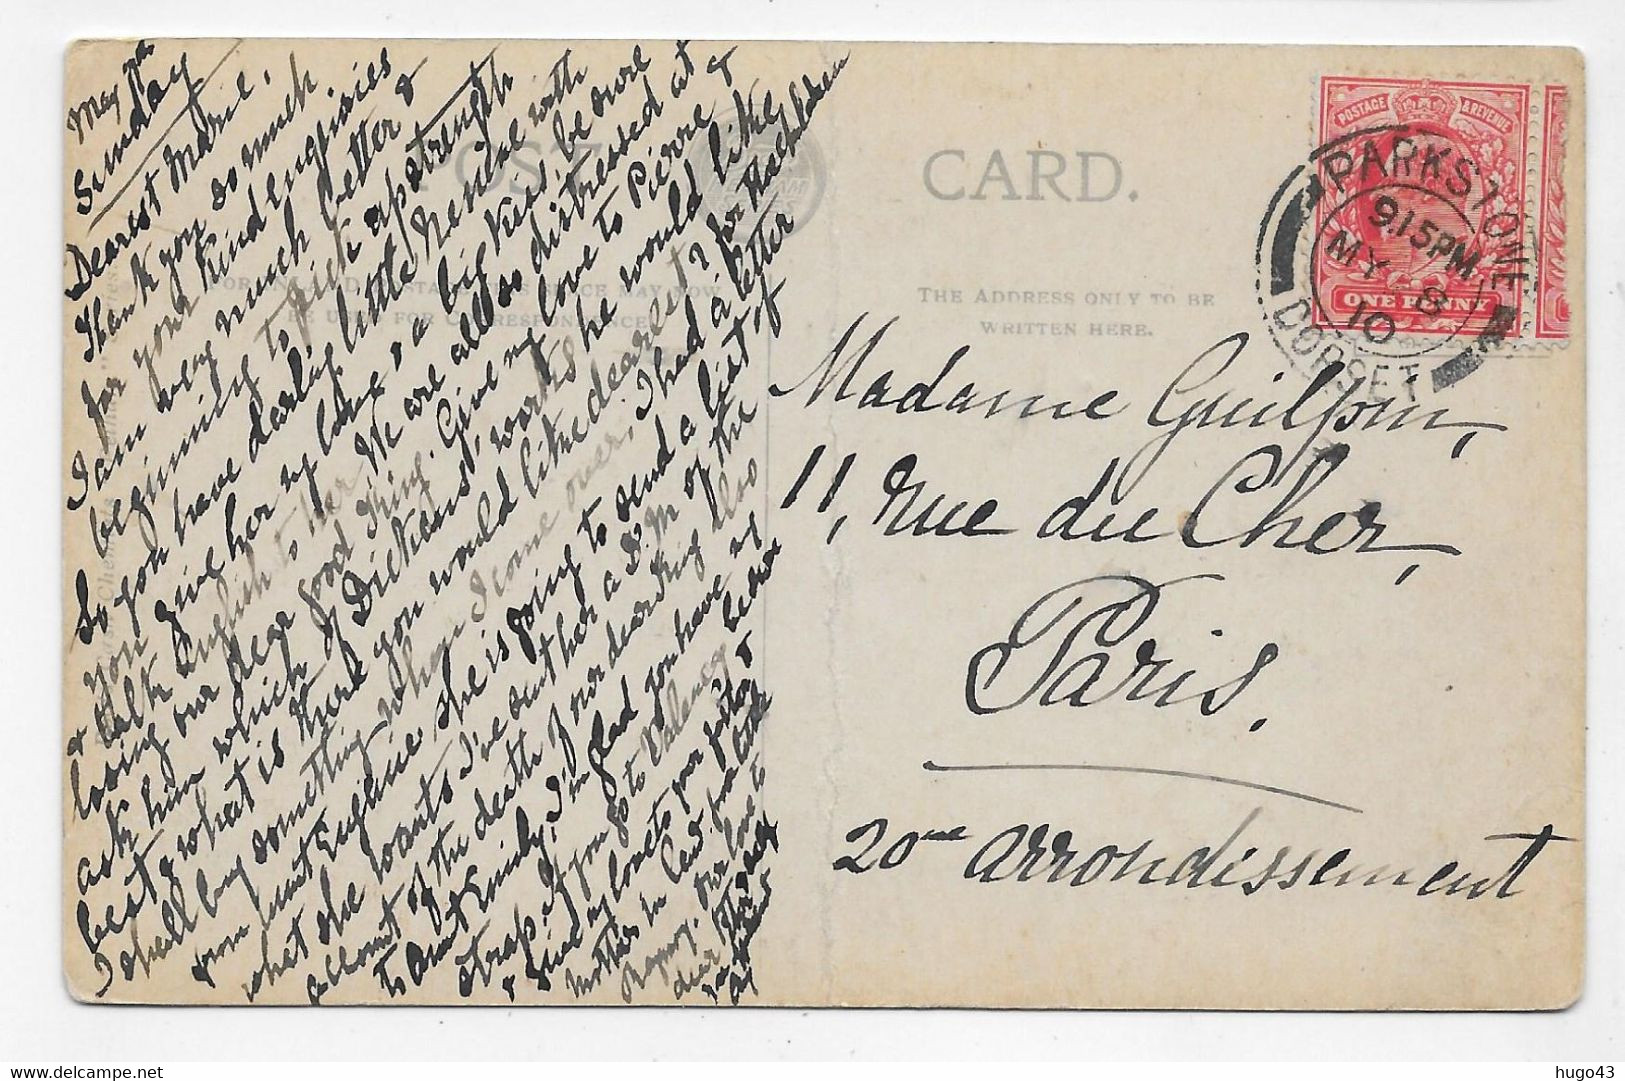 May 8th
Sunday
Dearest Marie,
Thank you so much
for your kind enquiries
I am very much better &
beginning to pick up strength
So you have darling little Renée with
you give her my love, & a big kiss, be sure
& talk English to her. We are all so distressed at
losing our dear good King. Give my love to Pierre &
ask him which of Dickens' works he would like
best & what is there you would like dearest? for
I shall buy something when I come over, I had a letter
from Aunt Eugénie she is going to send a list of
what she wants I've sent her a D.M of the
account of the death of our dear King also
to Aunt Emily, I'm glad you have my
strap. If you go to Valency
& give my love to your
Mother in Law
our love to
POST
CARD.
FOR INLAND POSTAGE THIS SPACE MAY NOW
BE USED FOR CORRESPONDENCE
THE ADDRESS ONLY TO BE
WRITTEN HERE.
POSTAGE & REVENUE
ONE PENNY
PARKSTONE
9.15 PM
MY 8
10
DORSET
Madame Guilpin,
11, Rue du Cher,
Paris.
20me arrondissement
hugo43